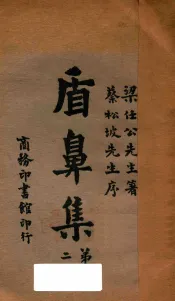 梁任公先生箸
蔡松坡先生序
盾鼻集
第二
商務印書館印行